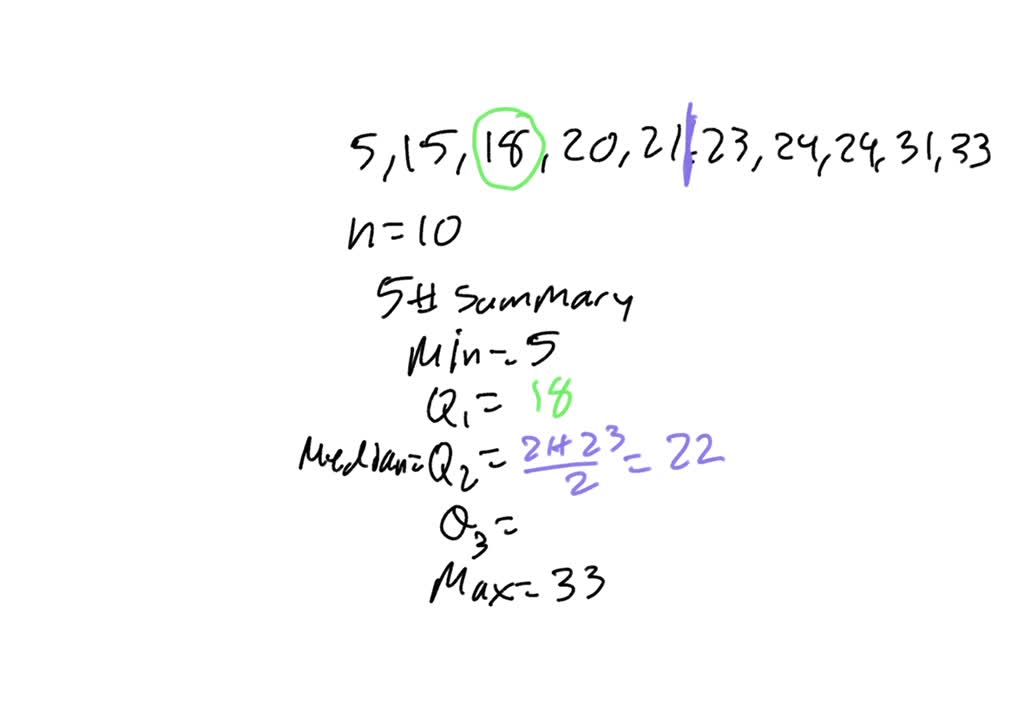 5, 15, 18, 20, 21, 23, 24, 24, 31, 33
n=10
5# Summary
Min=5
Q₁= 18
Median=Q₂= 21+23/2 = 22
Q₃=
Max=33